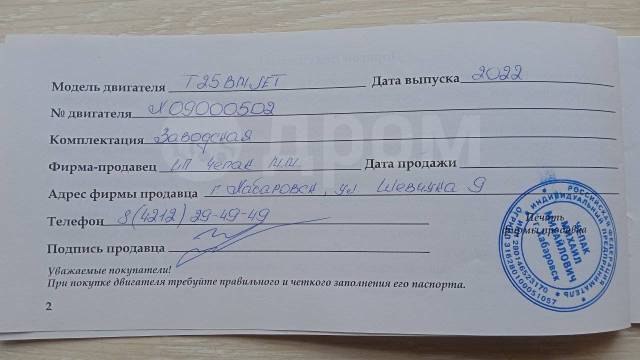 Модель двигателя T25BMJET Дата выпуска 2022
№ двигателя N09000502
Комплектация Заводская
Фирма-продавец ИП Чепак М.М. Дата продажи
Адрес фирмы продавца г Хабаровск, ул Шевчука 9
Телефон 8(4212) 29-49-49
Подпись продавца
Печать
фирмы продавца
РОССИЙСКАЯ ФЕДЕРАЦИЯ
ИНДИВИДУАЛЬНЫЙ ПРЕДПРИНИМАТЕЛЬ
ЧЕПАК
МИХАИЛ
МИХАЙЛОВИЧ
г. Хабаровск
Уважаемые покупатели!
При покупке двигателя требуйте правильного и четкого заполнения его паспорта.
2
ДРОМ